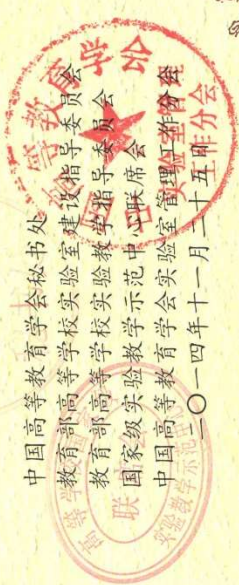 中国高等教育学会秘书处
教育部高等学校实验室建设指导委员会
教育部高等学校实验教学指导委员会
国家级实验教学示范中心联席会
中国高等教育学会实验室管理工作分会
二〇一四年十一月二十五日
等教育学会
工作分会
联席会
实验教学示范中心